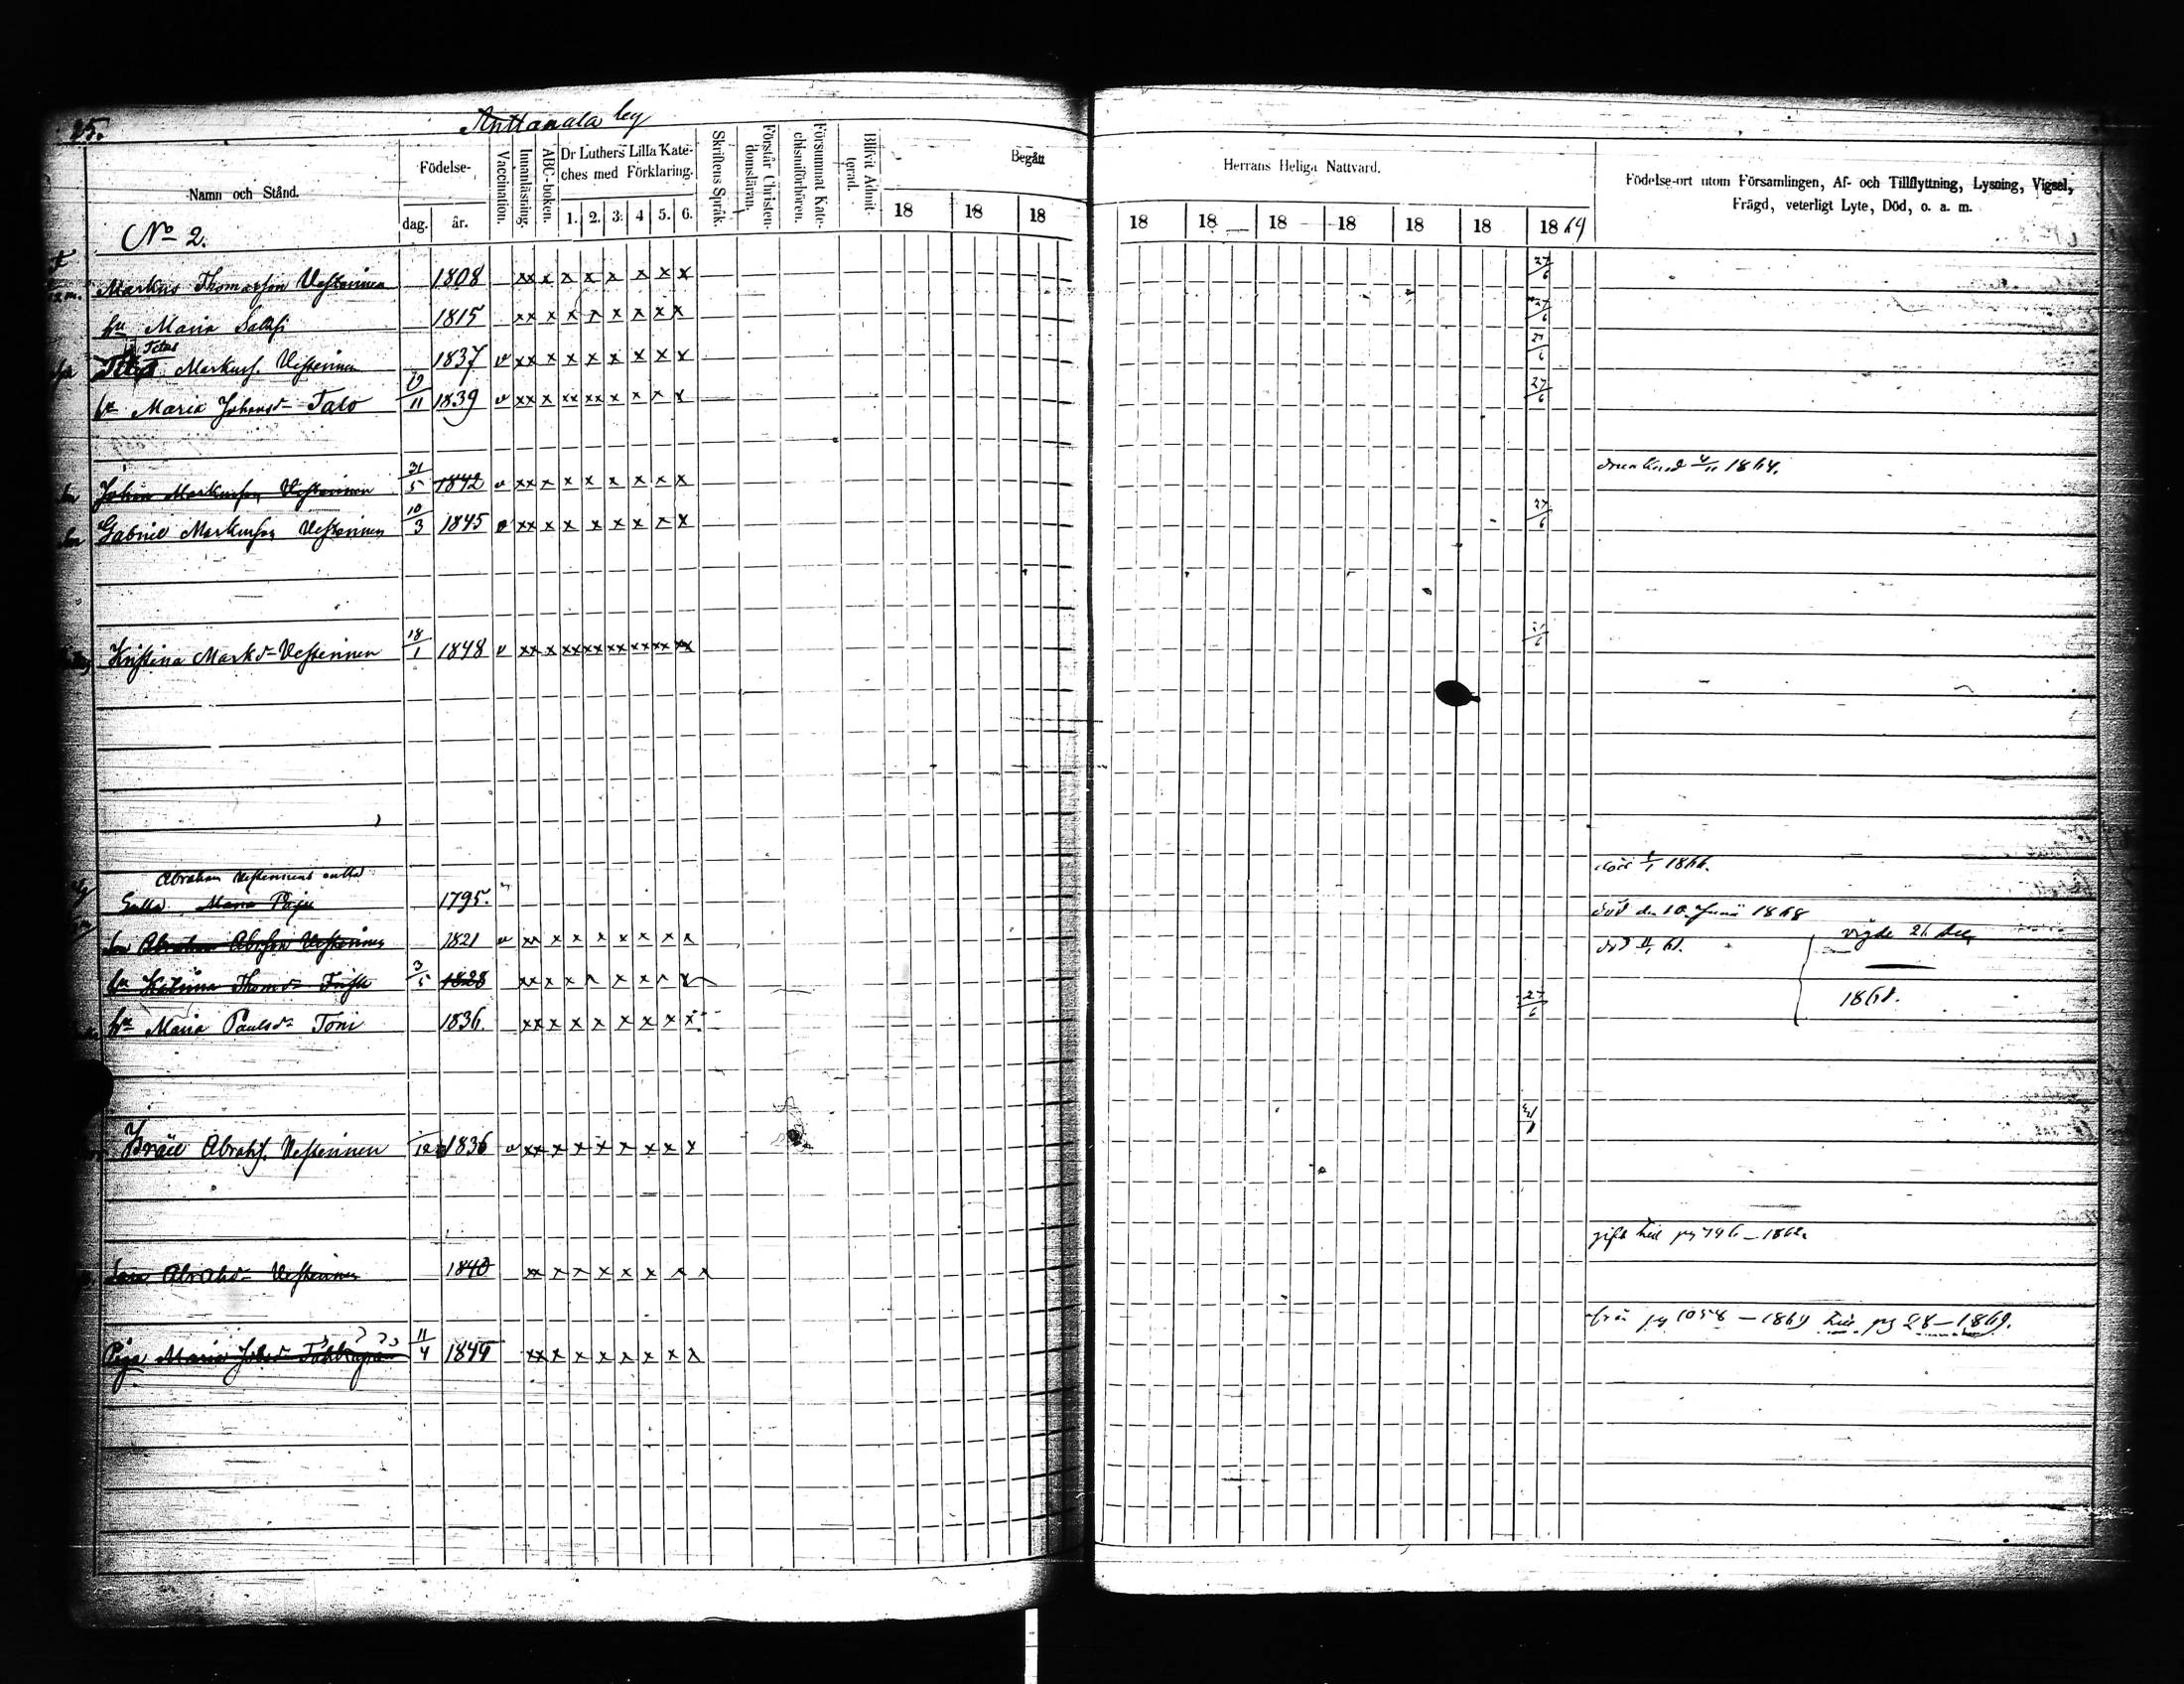 25.
Anttanala by
Namn och Stånd.
Födelse-
dag.
år.
Vaccination.
Innanläsning.
ABC-boken.
Dr Luthers Lilla Kate-
ches med Förklaring.
1. 2. 3. 4 5. 6.
Skriftens Språk.
Förstår Christen-
domsläran.
Försummat Kate-
chismiförhören.
Blifvit Admit-
terad.
Begått
18 18 18
Herrans Heliga Nattvard.
18 18 18 18 18 18 1869
Födelse-ort utom Församlingen, Af- och Tillflyttning, Lysning, Vigsel,
Frägd, veterligt Lyte, Död, o. a. m.
No 2.
Markus Thomasson Vesterinen 1808 xx x x x x x x x 27/6
hu Maria 1815 xx x x x x x x x 27/6
Markuss. Vesterinen 1837 v xx x x x x x x x 27/6
hu Maria Johansd Talo 11 1839 v xx x xx xx x x x x 27/6
Johan Markusson Vesterinen 31/5 1842 v xx x x x x x x x drunknad 4/11 1864.
Gabriel Markusson Vesterinen 10/3 1845 v xx x x x x x x x 27/6
Kristina Markd Vesterinen 18/1 1848 v xx x xx xx xx xx xx xx
Abraham Vesterinens enka
Maria 1795. död 1/1 1866.
Son Abraham Abrsson Vesterinen 1821 v xx x x x x x x x död den 10 Junii 1868
hu Katarina Thomsd 3/5 1828 xx x x x x x x x död
vigde 26 Dec
1868.
hu Maria Paulsd Toni 1836. xx x x x x x x x 27/6
Israel Abrahs. Vesterinen 1836 v xx x x x x x x x
Abrahd Vesterinen 1840 xx x x x x x x x gift
Piga Maria Johsd 11/4 1844 xx x x x x x x x från pg 1058 – 1869 till pg 28 – 1869.